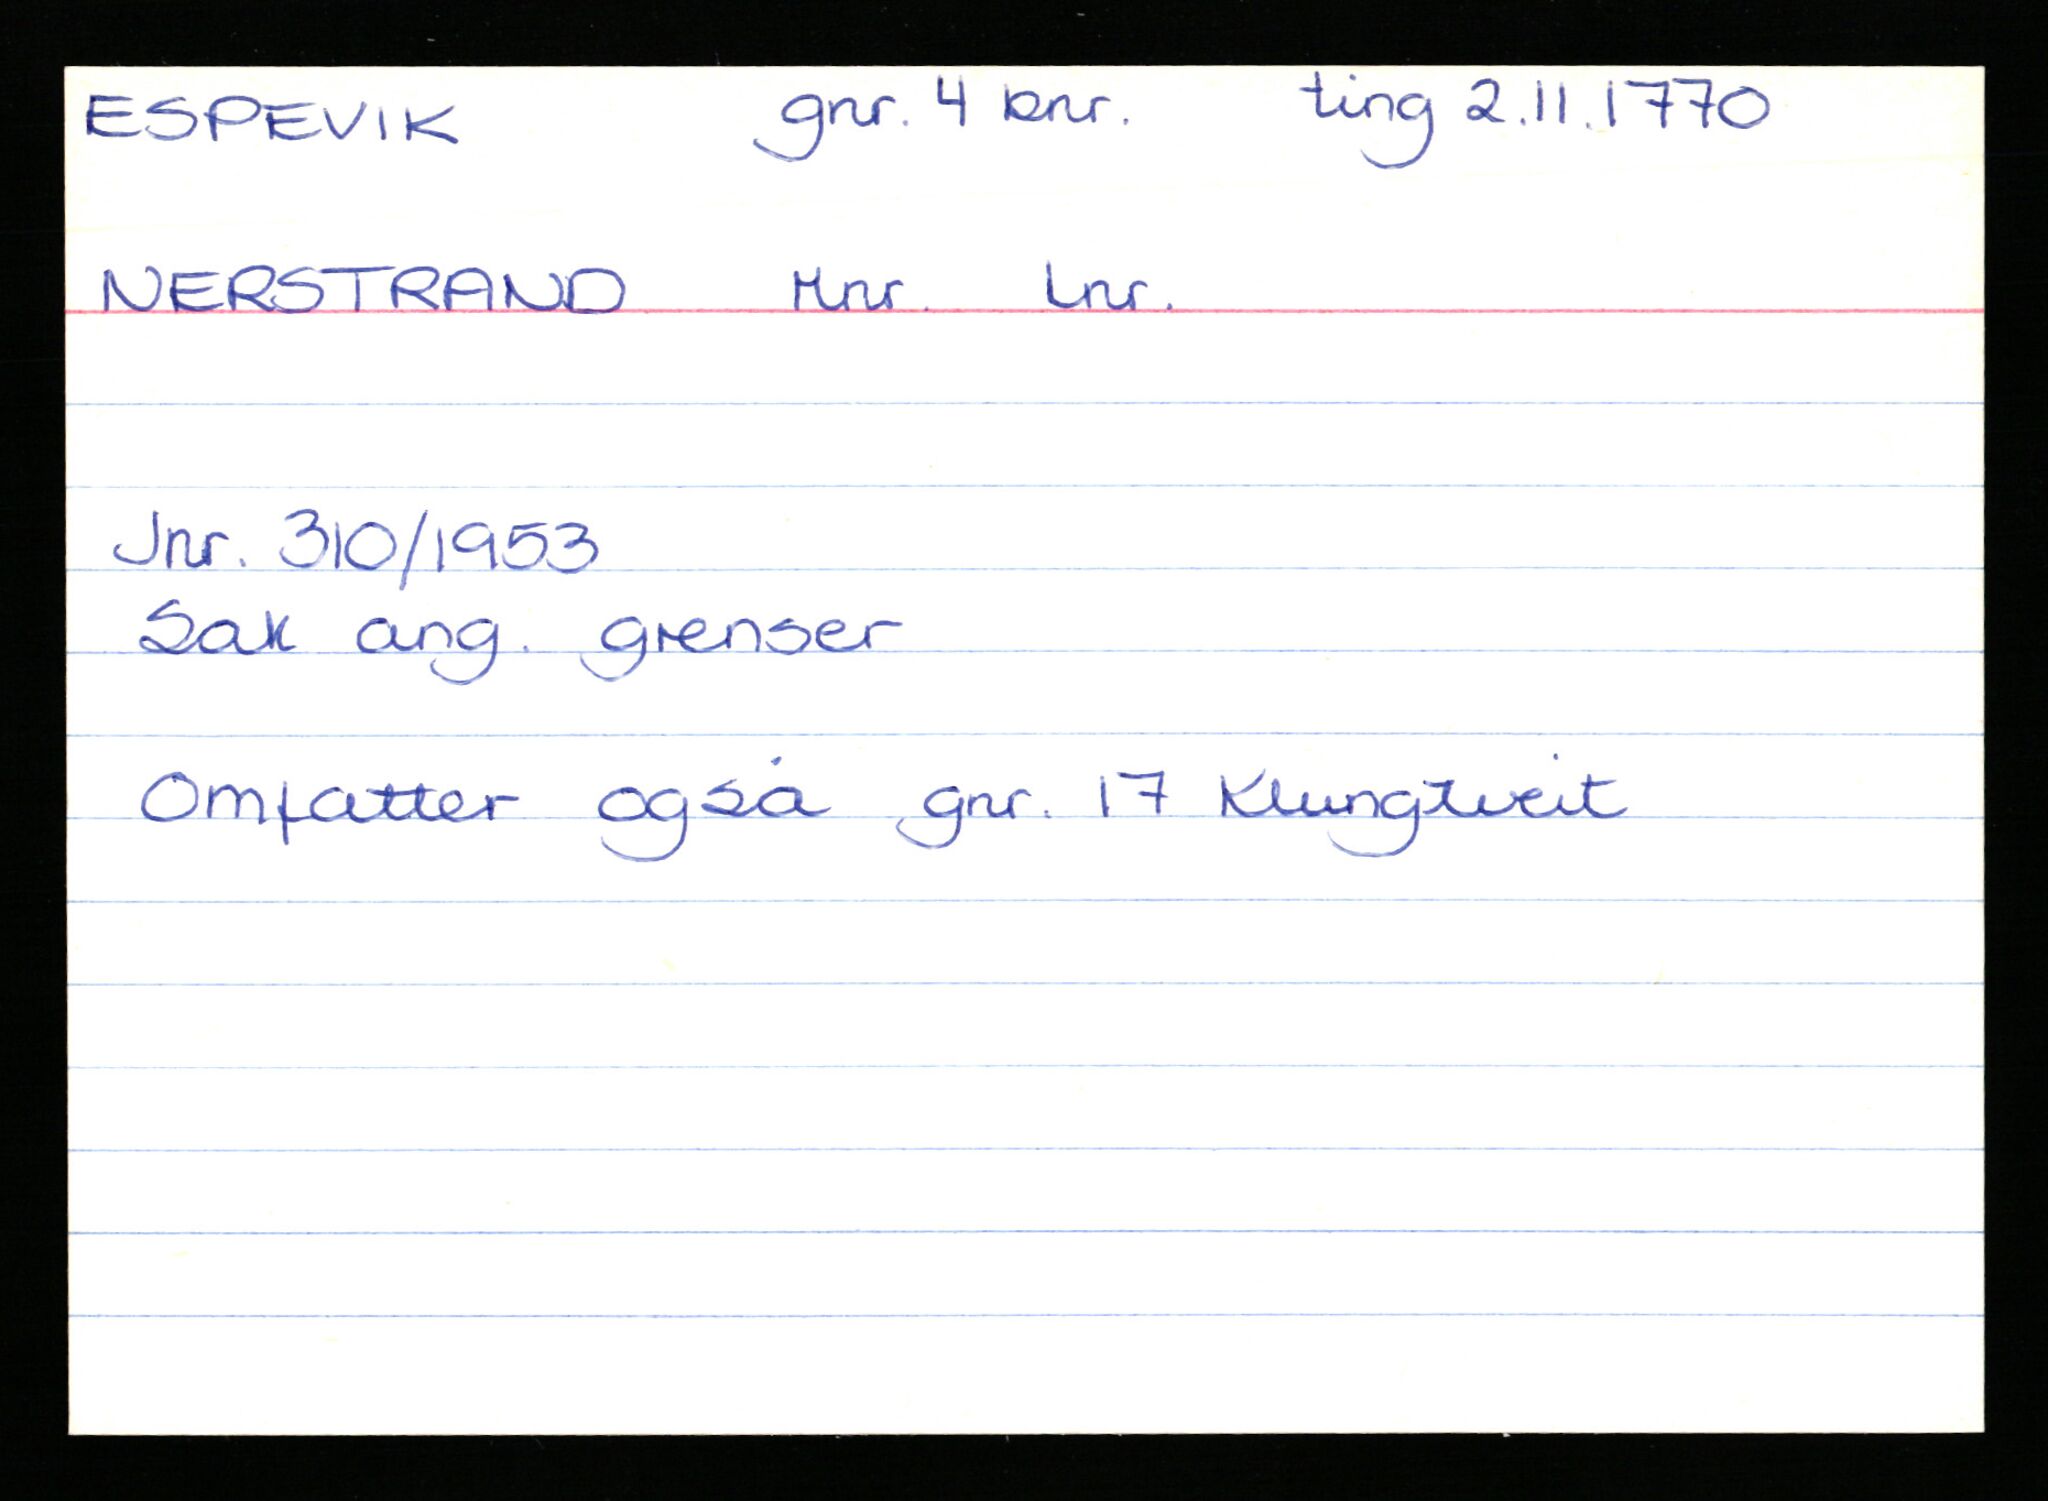 ESPEVIK gnr. 4 bnr. ting 2.11.1770
NERSTRAND Mnr. Lnr.
Jnr. 310/1953
Sak ang. grenser
Omfatter også gnr. 17 Klungtveit